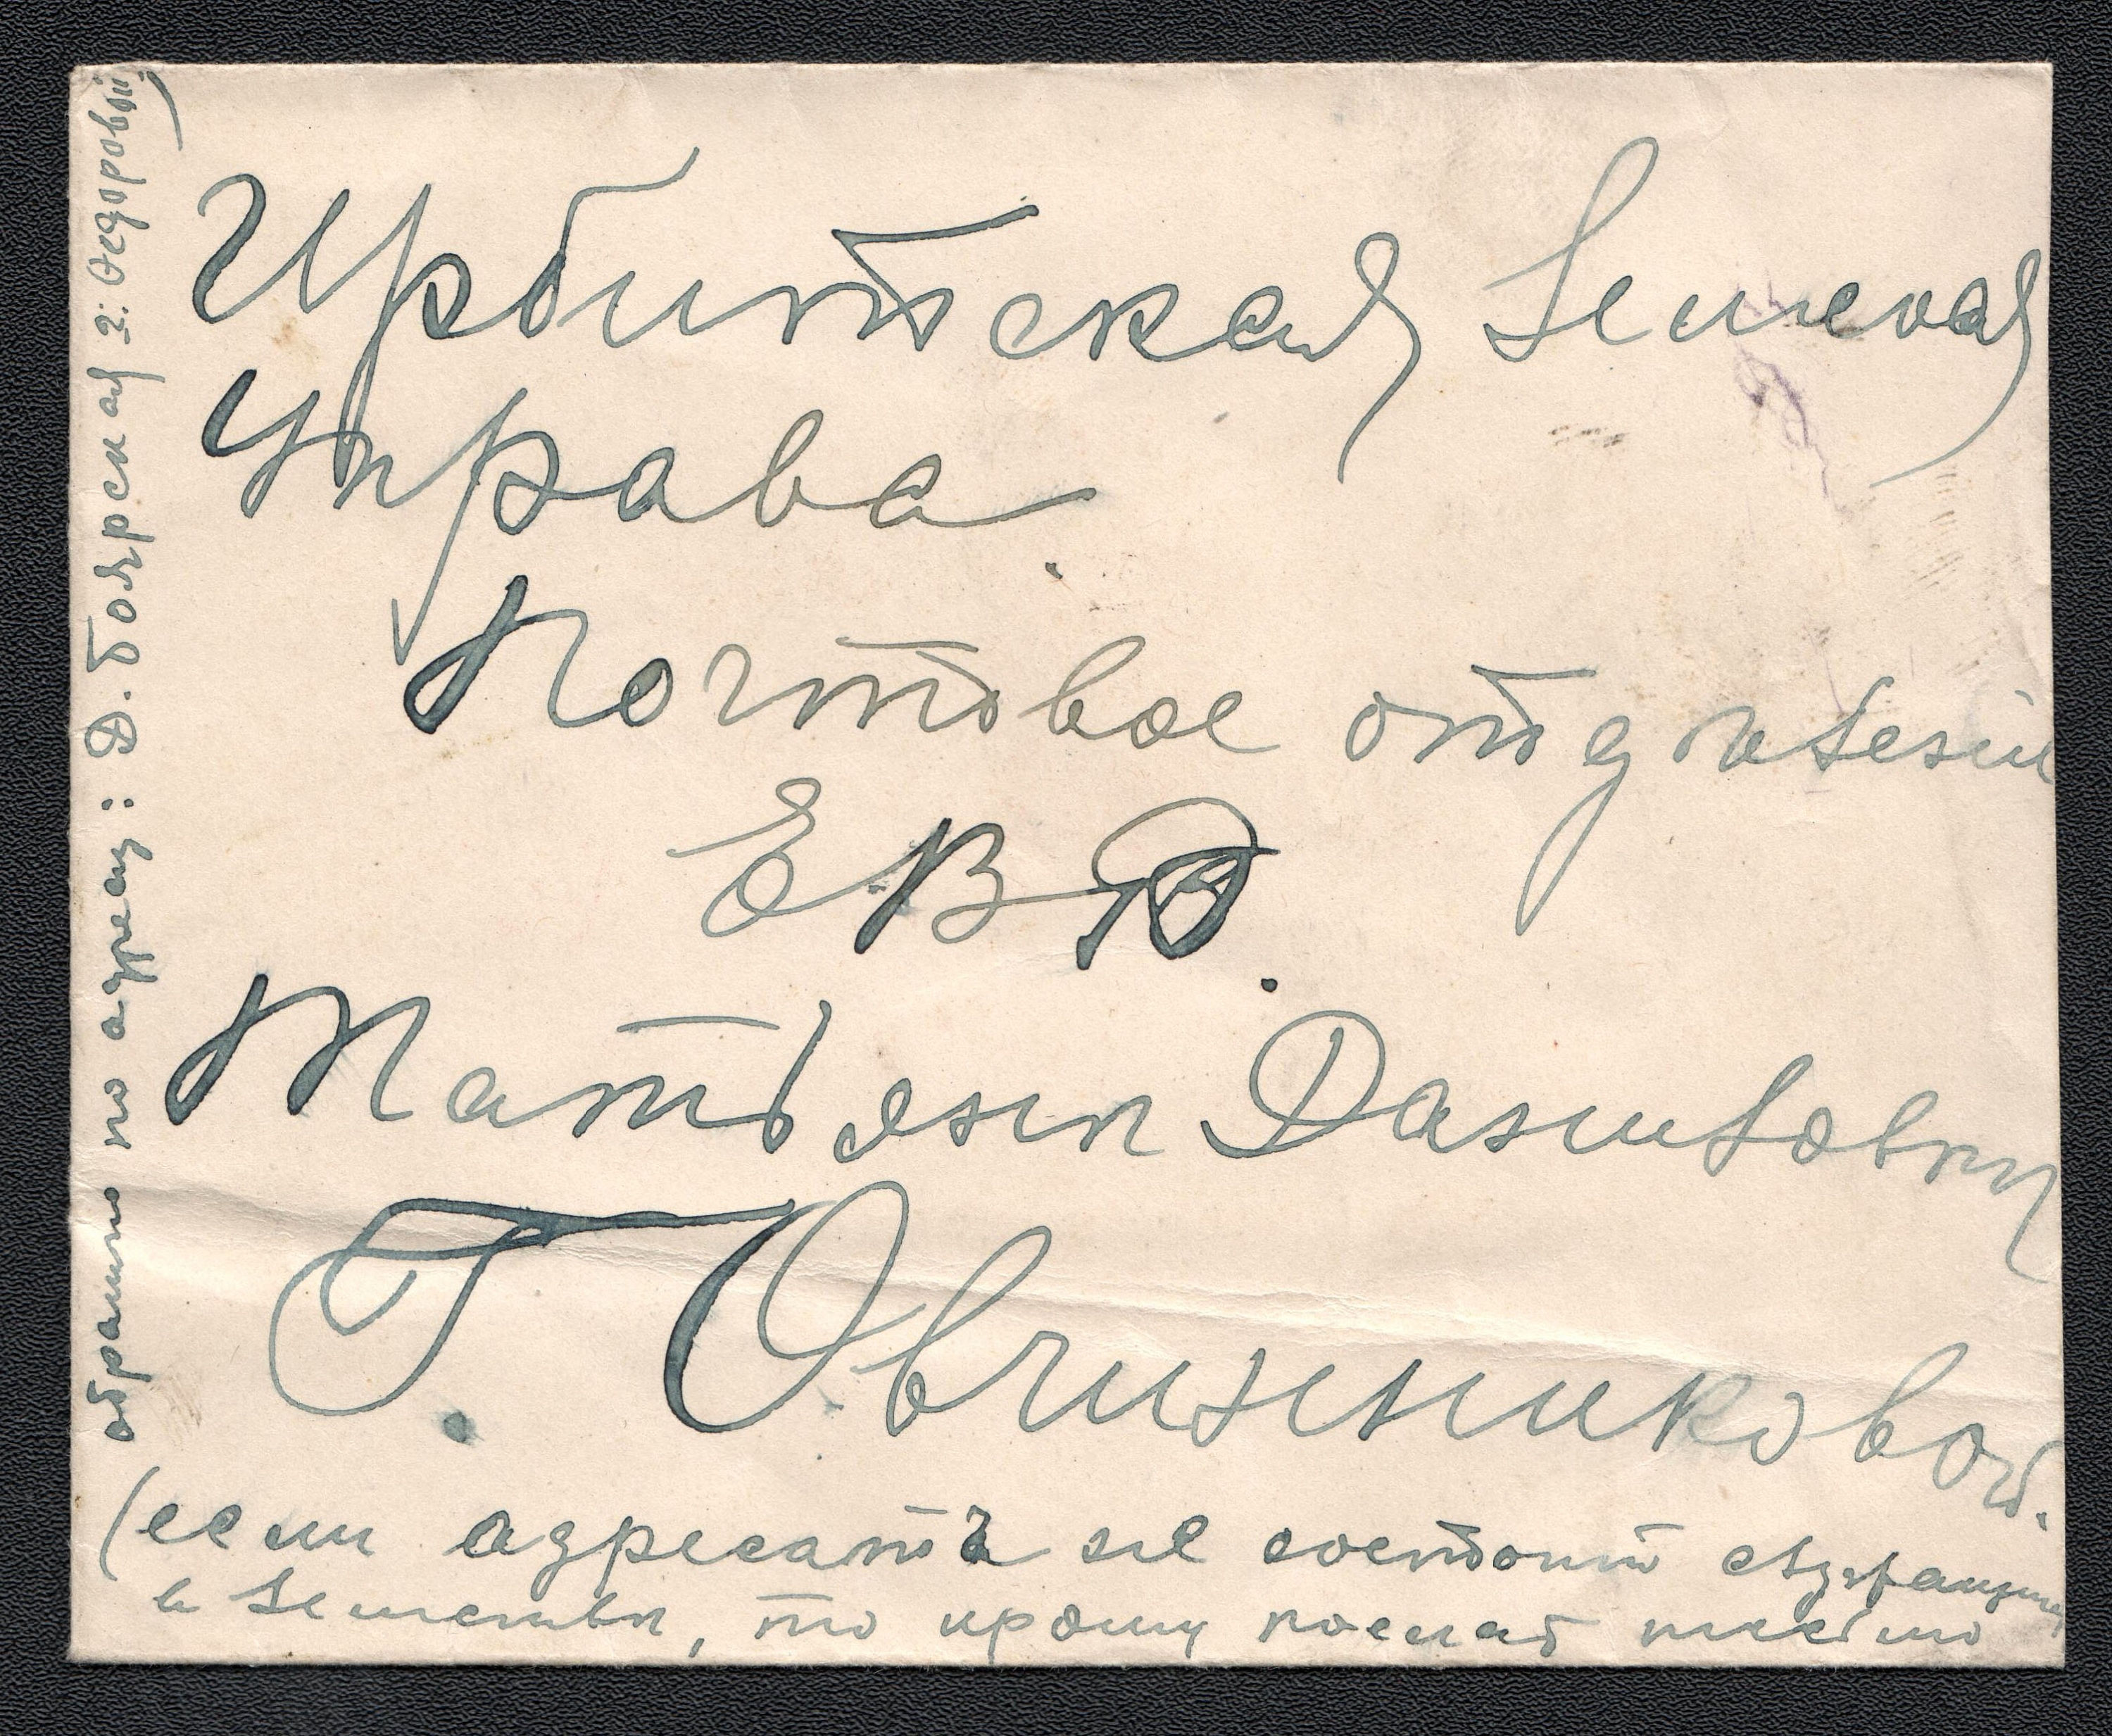 Ирбитская Земская
Управа.
Почтовое отдѣленiе
ЕВР.
Татьянѣ Даниловнѣ
Г. Овчинниковой.
(если адресатъ не состоитъ
в Земствѣ, то прошу послать письмо
обратно по адресу: Д. Боярская г. Ѳедоровой)